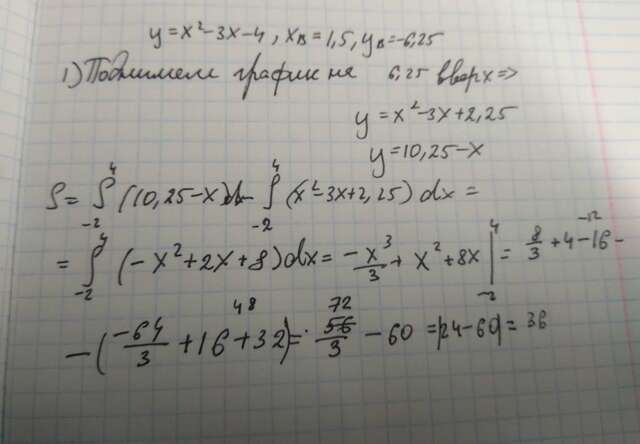 y=x²-3x-4, xв=1,5, yв=-6,25
1) Поднимем график на 6,25 вверх =>
y=x²-3x+2,25
y=10,25-x
S=∫₋₂⁴(10,25-x)dx-∫₋₂⁴(x²-3x+2,25)dx=
=∫₋₂⁴(-x²+2x+8)dx=-x³/3+x²+8x|₋₂⁴=8/3+4-16-
-12
-(-64/3+16+32)=72/3-60=|24-60|=36
48
56